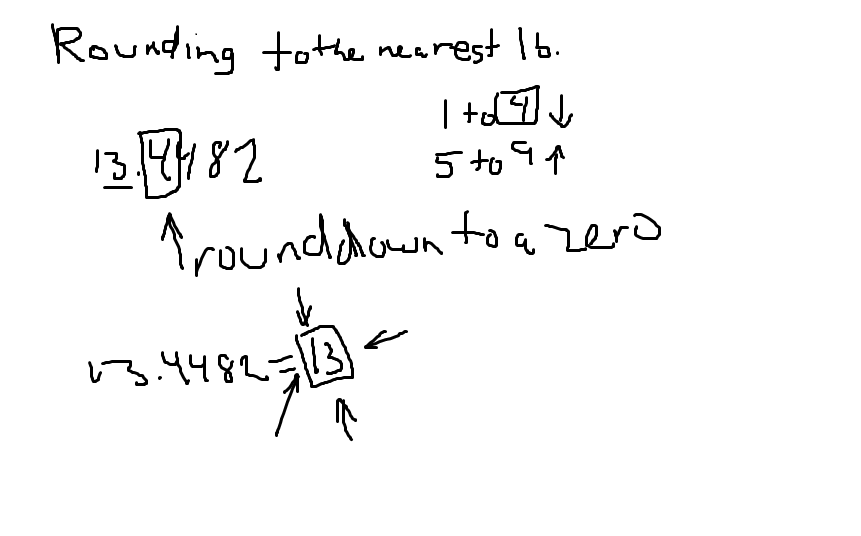 Rounding to the nearest lb.
1 to 4 ↓
13.4482
5 to 9 ↑
round down to a zero
13.4482 = 13